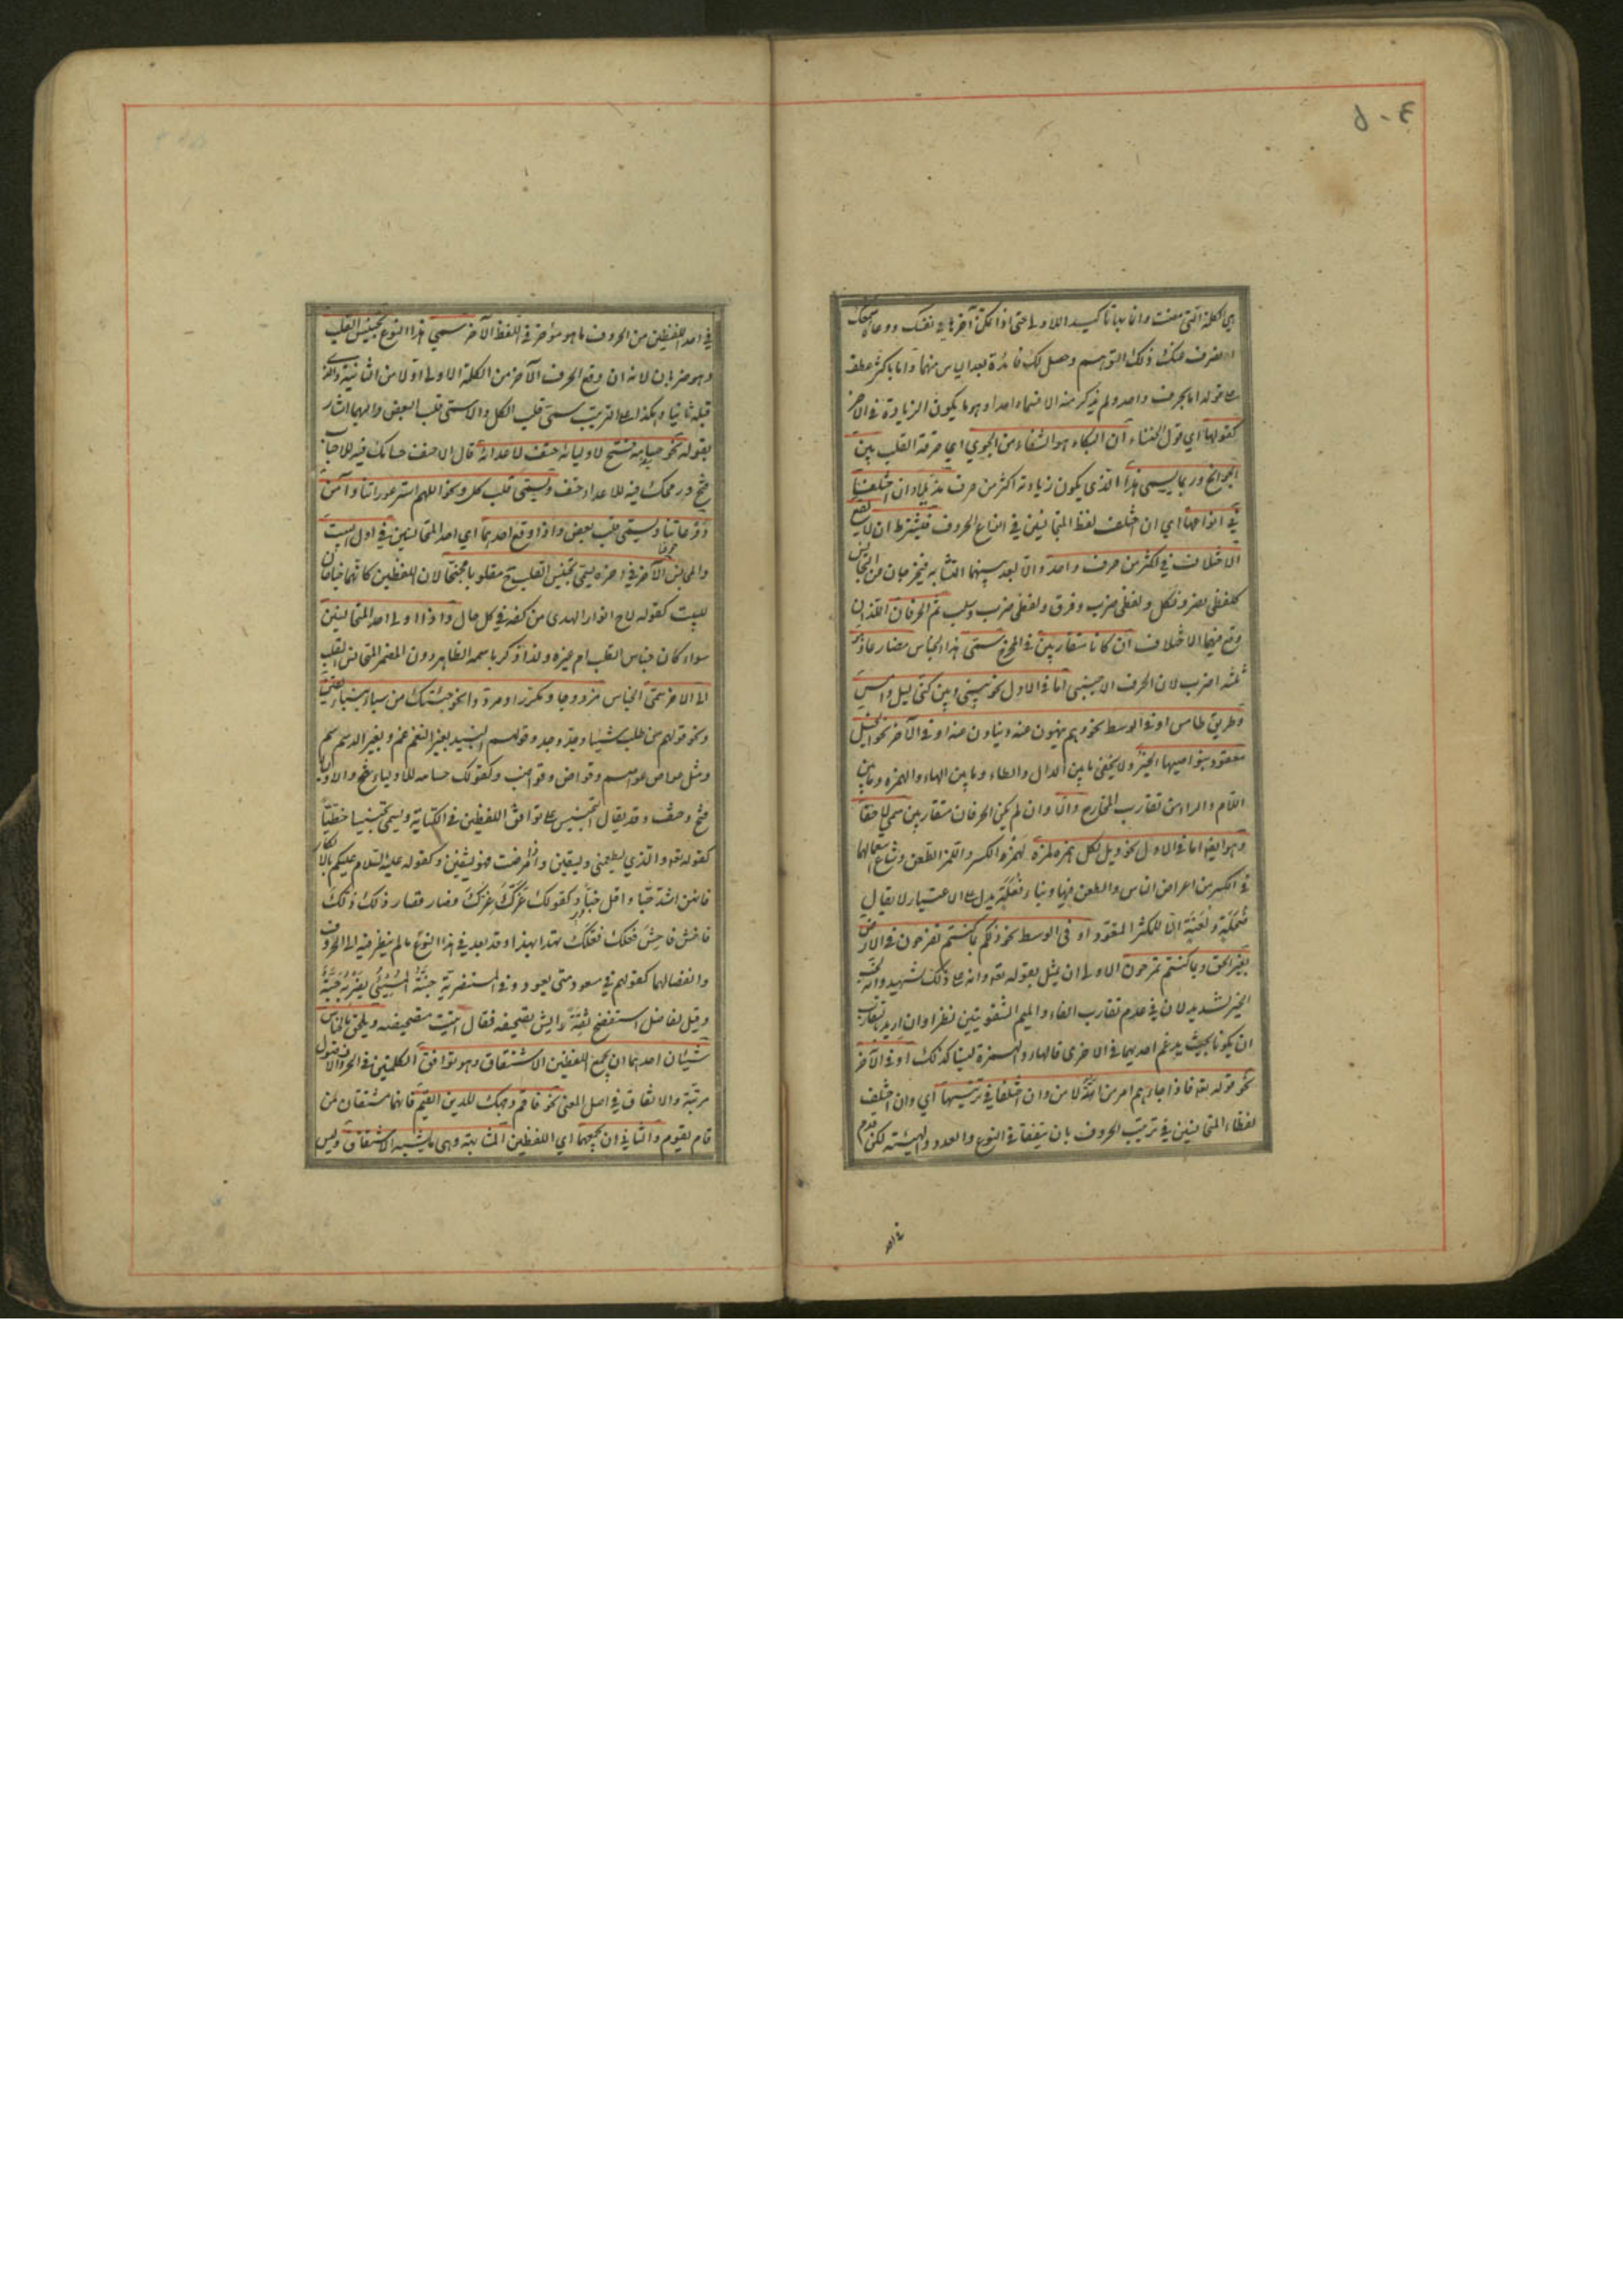 هي الكلمة التي مضت وانما اتى بها تاكيدا للاولى حتى اذا تمكن آخرها في نفسك ووعاه سمعك
انصرف عنك ذلك التوهم وحصل لك فائدة بعد الياس منها واما باكثر عطف
على قوله اما بحرف واحد ولم يذكر منه الا قسما واحدا وهو ما يكون الزيادة في الآخر
كقولها اي قول الخنساء ان البكاء هو الشفاء من الجوى اي حرقة القلب بين
الجوانح وربما يسمى هذا الذي يكون زيادته اكثر من حرف مذيلا وان اختلفتا
في انواعها اي ان اختلف لفظ المتجانسين في انواع الحروف فيشترط ان لا يقع
الاختلاف في اكثر من حرف واحد والا لبعد بينهما التشابه فيخرجان من التجانس
كلفظي نصر ونكل ولفظي ضرب وفرق ولفظي ضرب وسلب ثم الحرفان اللذان
وقع فيهما الاختلاف ان كانا متقاربين في المخرج سمى هذا الجناس مضارعا وهو
ثلثة اضرب لان الحرف الاجنبي اما في الاول نحو بيني وبين كني ليل دامس
وطريق طامس او في الوسط نحو وهم ينهون عنه ويناون عنه او في الآخر نحو الخيل
معقود بنواصيها الخير ولا يخفى ما بين الدال والطاء وما بين الهاء والهمزة وما بين
اللام والراء من تقارب المخارج والا وان لم يكن الحرفان متقاربين سمى لاحقا
وهو ايضا اما في الاول نحو ويل لكل همزة لمزة الهمز الكسر واللمز الطعن وشاع استعمالهما
في الكسر من اعراض الناس والطعن فيها وبناء فعلة يدل على الاعتياد لا يقال
ضحكة ولعنة الا للمكثر المتعود او في الوسط نحو ذلكم بما كنتم تفرحون في الارض
بغير الحق وبما كنتم تمرحون الاولى ان يمثل بقوله تعه وانه على ذلك لشهيد وانه لحب
الخير لشديد لان في عدم تقارب الفاء والميم الشفويتين نظرا وان اريد بتقارب
ان يكونا بحيث يدغم احديهما في الاخرى فالهاء والهمزة ليستا كذلك او في الآخر
نحو قوله تعه فاذا جاءهم امر من الامن وان اختلفا في ترتيبها اي وان اختلف
لفظاء المتجانسين في ترتيب الحروف بان يتفقا في النوع والعدد والهيئة لكن قدم
في احد
في احد اللفظين من الحروف ما هو مؤخر في اللفظ الآخر سمي هذا النوع تجنيس القلب
وهو ضربان لانه ان وقع الحرف الآخر من الكلمة الاولى اولا من الثانية والذي
قبله ثانيا وهكذا على الترتيب سمى قلب الكل والا سمى قلب البعض واليهما اشار
بقوله نحو حسامه فتح لاوليائه حتف لاعدائه قال الاحنف حسامك فيه للاحباب
فتح ورمحك فيه للاعداء حتف ويسمى قلب كل ونحو اللهم استر عوراتنا وآمن
روعاتنا ويسمى قلب بعض واذا وقع احدهما اي احد المتجانسين في اول البيت
والمجانس الآخر في آخره يسمى تجنيس القلب ح مقلوبا مجنحا لان اللفظين كانهما جناحان
للبيت كقوله لاح انوار الهدى من كفه في كل حال واذا ولى احد المتجانسين
سواء كان جناس القلب ام غيره ولذا ذكر باسمه الظاهر دون المضمر المتجانس القلب
الى الآخر سمى الجناس مزدوجا ومكررا ومرددا نحو جئتك من سباء بنباء يقين
ونحو قولهم من طلب شيئا وجد وجد وقولهم النبيذ بغير النغم غم وبغير الدسم سم
ومثل عواص عواصم وقواض وقواضب وكقولك حسامه للاولياء فتح والاعداء
فتح وحتف وقد يقال التجنيس على توافق اللفظين في الكتابة ويسمى تجنيسا خطيا
كقوله تعه والذي يطعمني ويسقين واذا مرضت فهو يشفين وكقوله عليه السلام عليكم بالابكار
فانهن اشد حبا واقل خبا وكقولك غرك عزك فصار قصار ذلك ذلك
فاخش فاحش فعلك فعلك تهدا بهذا وقد يعد في هذا النوع ما لم ينظر فيه الى الحروف
وانفصالها كقولهم في مسعود متى يعود وفي المستنصرية جنة المسيئ يضر به حية
وقيل لفاضل استنصح ثقة ايش تصحيفه فقال اتيت بتصحيفه ويلحق بالجناس
شيئان احدهما ان يجمع اللفظين الاشتقاق وهو توافق الكلمتين في الحروف الاصول
مرتبة والاتفاق في اصل المعنى نحو فاقم وجهك للدين القيم فانهما مشتقان من
قام يقوم والثاني ان يجمعهما اي اللفظين المشابهة وهي ما يشبه الاشتقاق وليس